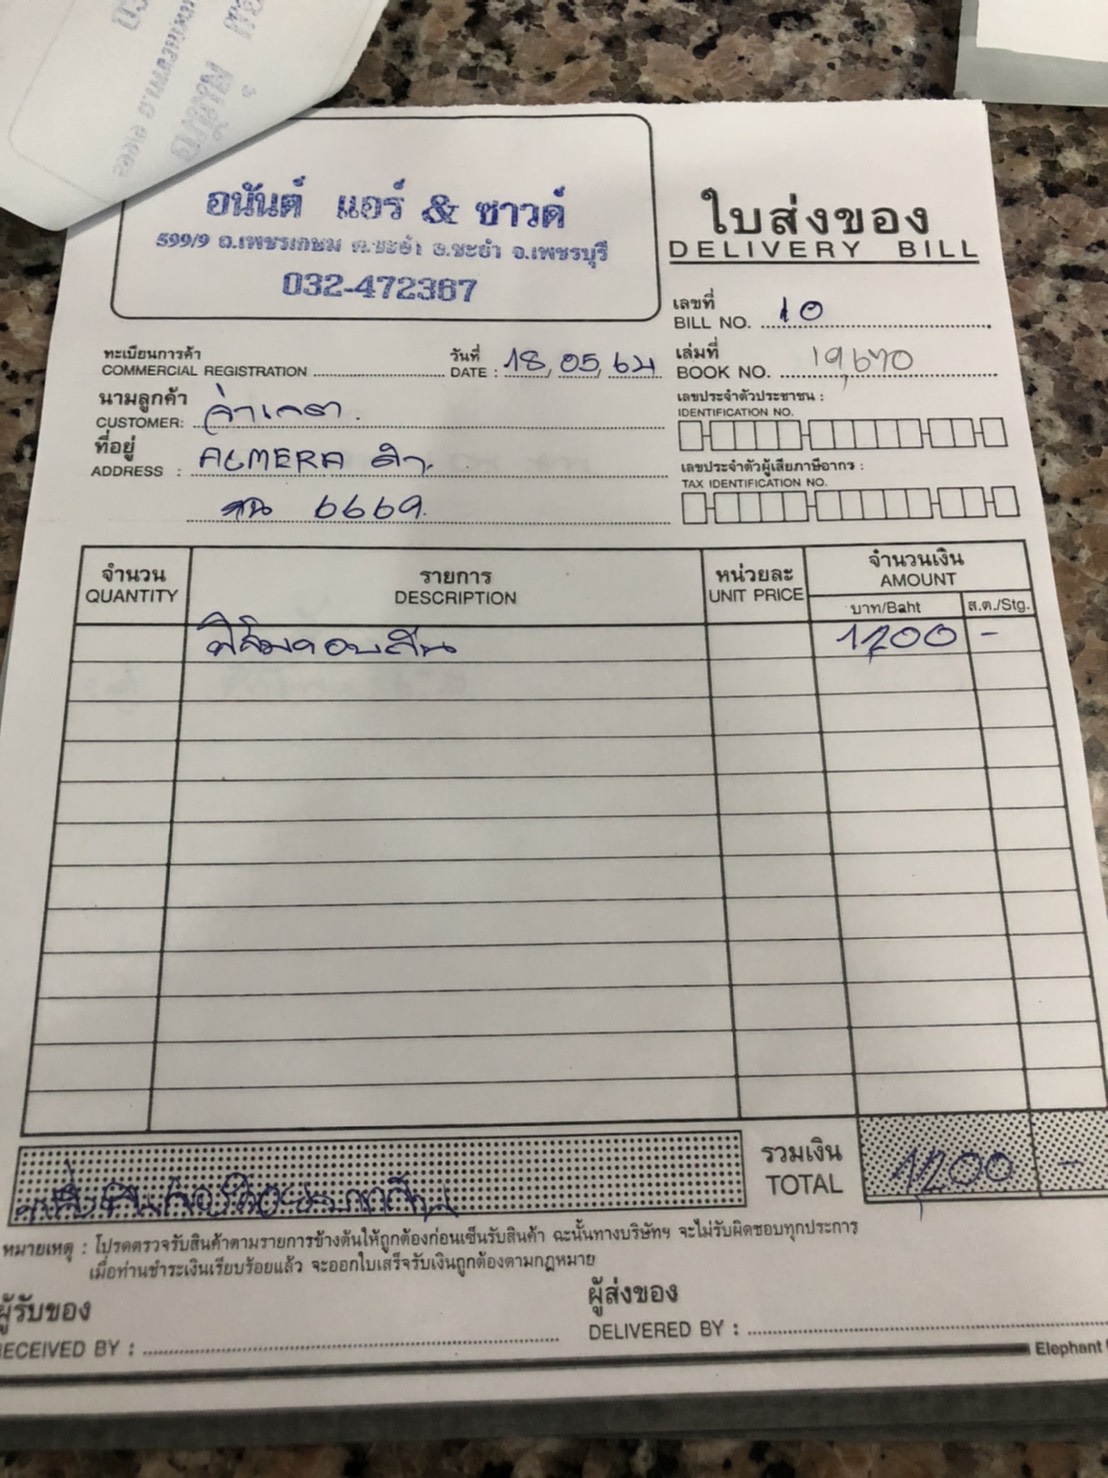 อนันต์ แอร์ & ซาวด์
599/9 ถ.เพชรเกษม ต.ชะอำ อ.ชะอำ จ.เพชรบุรี
032-472367
ใบส่งของ
DELIVERY BILL
เลขที่
BILL NO. 10
ทะเบียนการค้า
COMMERCIAL REGISTRATION
วันที่
DATE : 18, 05, 64
เล่มที่
BOOK NO. 19,670
นามลูกค้า
CUSTOMER:
เลขประจำตัวประชาชน :
IDENTIFICATION NO.
ที่อยู่
ADDRESS : ALMERA ดำ
เลขประจำตัวผู้เสียภาษีอากร :
TAX IDENTIFICATION NO.
6669
จำนวน
QUANTITY
รายการ
DESCRIPTION
หน่วยละ
UNIT PRICE
จำนวนเงิน
AMOUNT
บาท/Baht
ส.ต./Stg.
ฟิล์มรอบคัน 1,200 -
หนึ่งพันสองร้อยบาทถ้วน
รวมเงิน
TOTAL
1,200 -
หมายเหตุ : โปรดตรวจรับสินค้าตามรายการข้างต้นให้ถูกต้องก่อนเซ็นรับสินค้า ฉะนั้นทางบริษัทฯ จะไม่รับผิดชอบทุกประการ
เมื่อท่านชำระเงินเรียบร้อยแล้ว จะออกใบเสร็จรับเงินถูกต้องตามกฎหมาย
ผู้รับของ
RECEIVED BY :
ผู้ส่งของ
DELIVERED BY :
Elephant